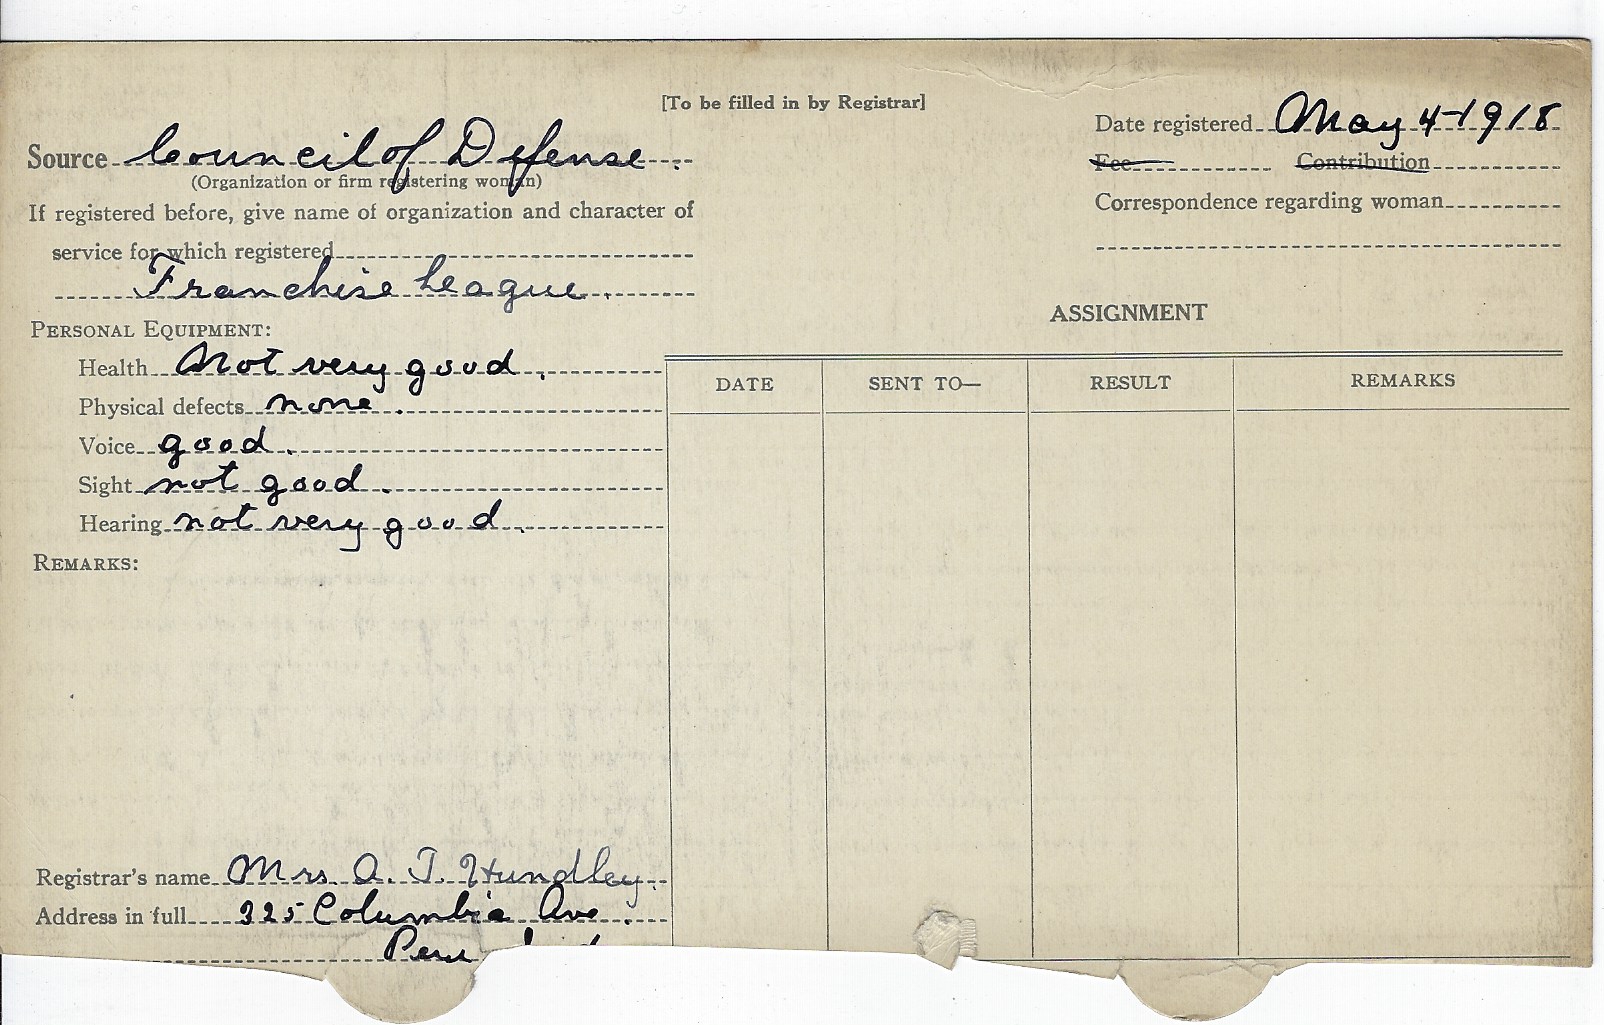 [To be filled in by Registrar]
Date registered May 4-1918
Source Council of Defense.
(Organization or firm registering woman)
Fee Contribution
If registered before, give name of organization and character of
service for which registered
Franchise League.
Correspondence regarding woman
ASSIGNMENT
PERSONAL EQUIPMENT:
Health Not very good.
Physical defects none.
Voice good.
Sight not good.
Hearing not very good.
REMARKS:
DATE SENT TO— RESULT REMARKS
Registrar's name Mrs. A. T. Hundley.
Address in full 325 Columbia Ave.
Peru